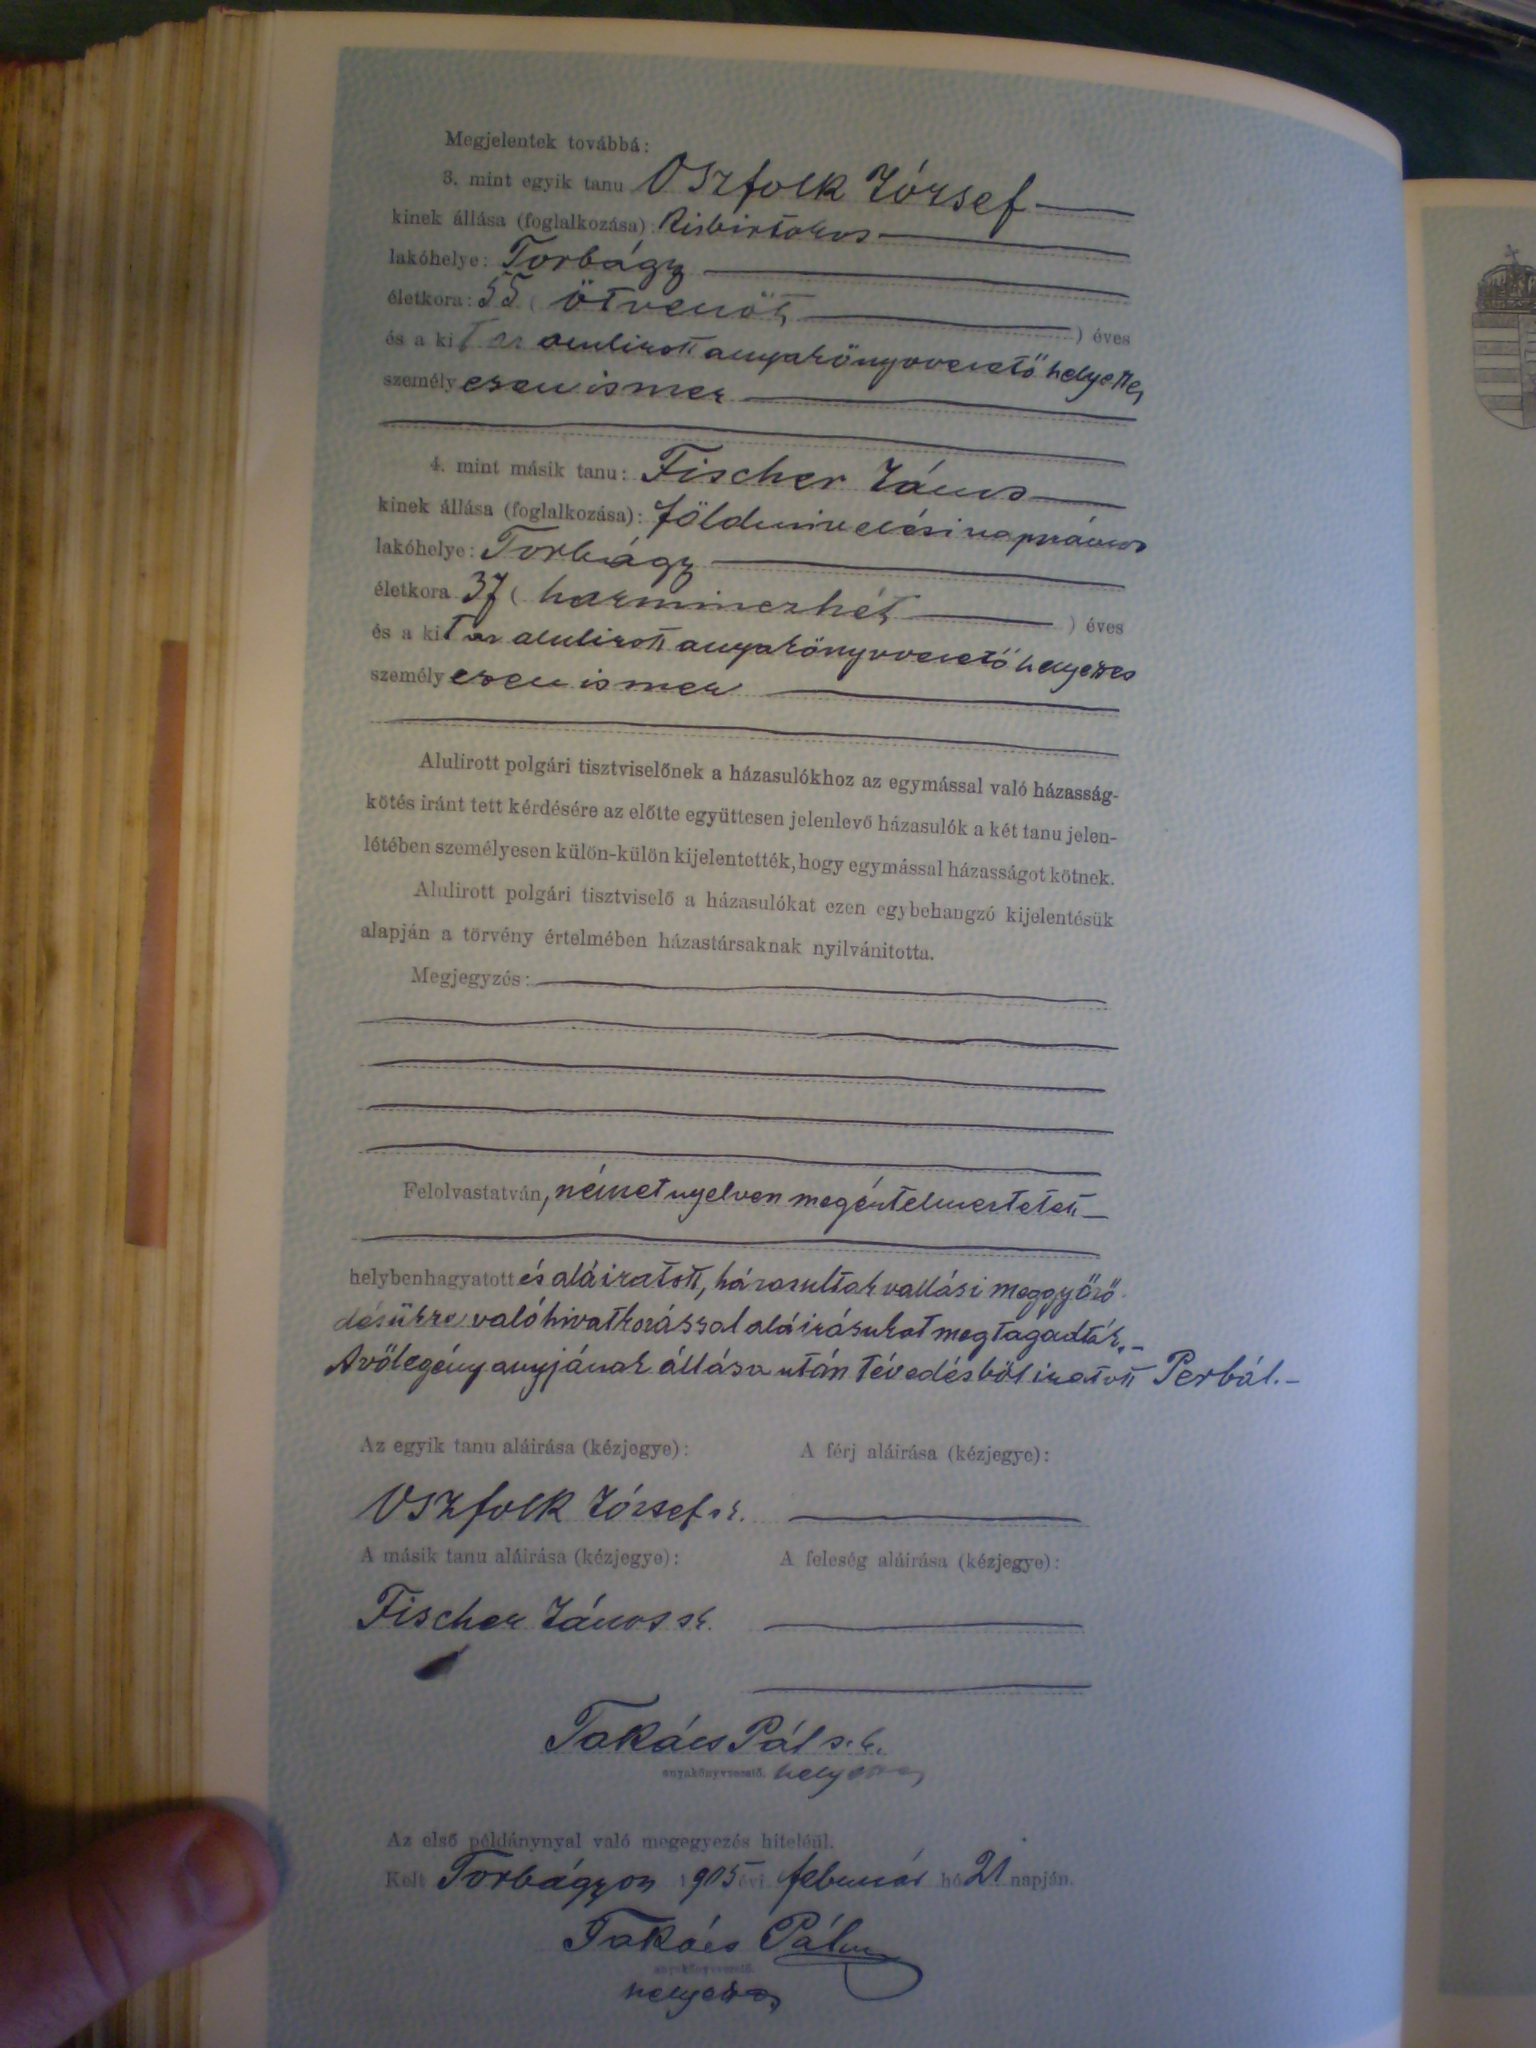 Megjelentek továbbá:
3. mint egyik tanu Oszfolk József
kinek állása (foglalkozása): Kisbirtokos
lakóhelye: Torbágy
életkora: 55 ( ötvenöt ) éves
és a kit az alulirott anyakönyvvezető helyettes
személyesen ismer
4. mint másik tanu: Fischer János
kinek állása (foglalkozása): földmivelési napszámos
lakóhelye: Torbágy
életkora 37 ( harminczhét ) éves
és a kit az alulirott anyakönyvvezető helyettes
személyesen ismer
Alulirott polgári tisztviselőnek a házasulókhoz az egymással való házasság-
kötés iránt tett kérdésére az előtte együttesen jelenlevő házasulók a két tanu jelen-
létében személyesen külön-külön kijelentették, hogy egymással házasságot kötnek.
Alulirott polgári tisztviselő a házasulókat ezen egybehangzó kijelentésük
alapján a törvény értelmében házastársaknak nyilvánitotta.
Megjegyzés:
Felolvastatván, német nyelven megértelmeztetett
helybenhagyatott és aláiratott, házasultak vallási meggyőző-
désükre való hivatkozással aláirásukat megtagadták.-
A vőlegény anyjának állása után tévedésből iratott Perbál.-
Az egyik tanu aláirása (kézjegye):
A férj aláirása (kézjegye):
Oszfolk József sk.
A másik tanu aláirása (kézjegye):
A feleség aláirása (kézjegye):
Fischer János sk.
Takács Pál s.k.
anyakönyvvezető. helyettes
Az első példánynyal való megegyezés hiteléül.
Kelt Torbágyon 1905 évi február hó 21 napján.
Takács Pál
anyakönyvvezető.
helyettes